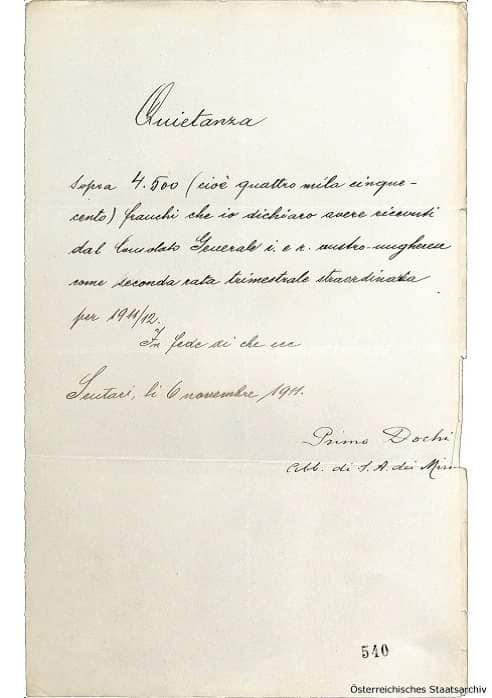 Quietanza
sopra 4.500 (cioè quattro mila cinque-
cento) franchi che io dichiaro avere ricevuti
dal Consolato Generale i. e r. austro-ungherese
come seconda rata trimestrale straordinaria
per 1911/12.
In fede di che ecc
Scutari, li 6 novembre 1911.
Primo Dochi
Abb. di S. A. dei Miri
540
Österreichisches Staatsarchiv